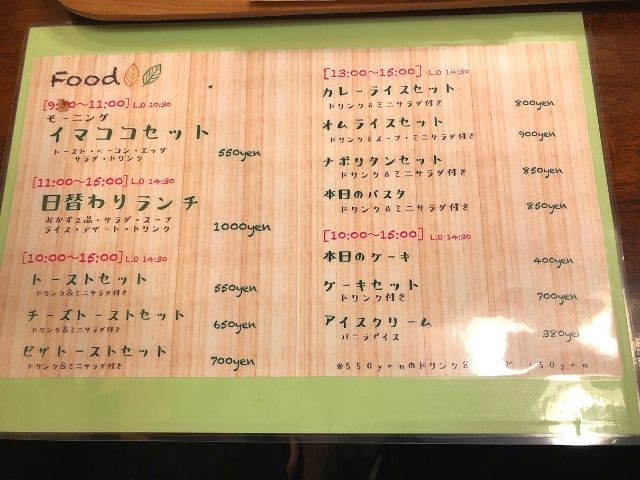 Food
[9:00~11:00] L.O 10:30
モーニング
イマココセット
トースト・ベーコン・エッグ
サラダ・ドリンク
550yen
[11:00~15:00] L.O 14:30
日替わりランチ
おかず2品・サラダ・スープ
ライス・デザート・ドリンク
1000yen
[10:00~15:00] L.O 14:30
トーストセット
ドリンク&ミニサラダ付き
550yen
チーズトーストセット
ドリンク&ミニサラダ付き
650yen
ピザトーストセット
ドリンク&ミニサラダ付き
700yen
[13:00~15:00] L.O 14:30
カレーライスセット
ドリンク&ミニサラダ付き
800yen
オムライスセット
ドリンク&スープ・ミニサラダ付き
900yen
ナポリタンセット
ドリンク&ミニサラダ付き
850yen
本日のパスタ
ドリンク&ミニサラダ付き
850yen
[10:00~15:00] L.O 14:30
本日のケーキ
400yen
ケーキセット
ドリンク付き
700yen
アイスクリーム
バニラアイス
380yen
※550yenのドリンクを